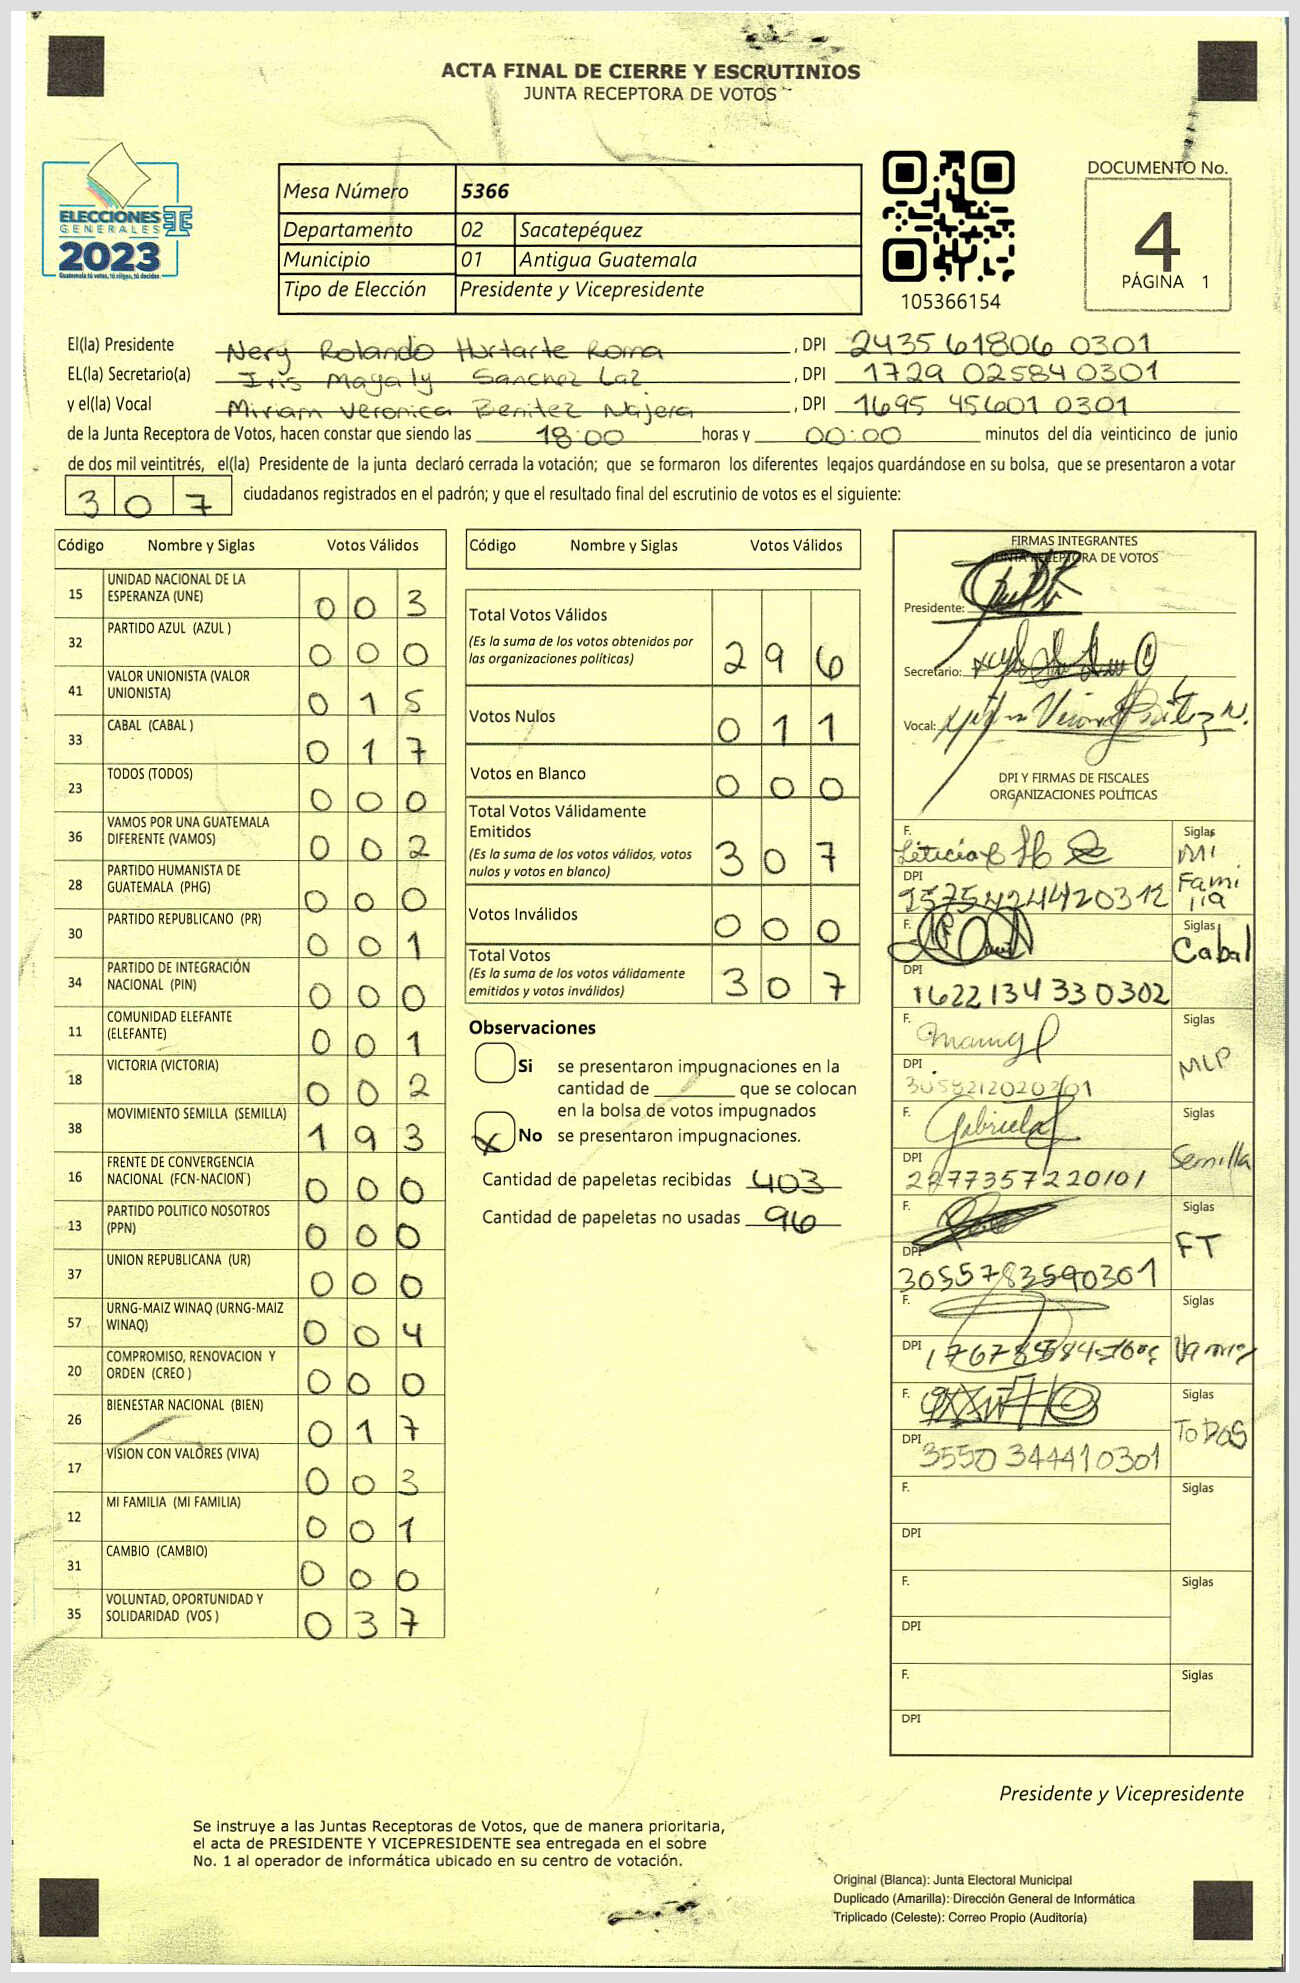 ACTA FINAL DE CIERRE Y ESCRUTINIOS
JUNTA RECEPTORA DE VOTOS
ELECCIONES
GENERALES
2023
Guatemala tú votas, tú eliges, tú decides
Mesa Número 5366
Departamento 02 Sacatepéquez
Municipio 01 Antigua Guatemala
Tipo de Elección Presidente y Vicepresidente
105366154
DOCUMENTO No.
4
PÁGINA 1
El(la) Presidente Nery Rolando Hurtarte Roma, DPI 2435 61806 0301
EL(la) Secretario(a) Iris Magaly Sanchez Laz, DPI 1729 02584 0301
y el(la) Vocal Miriam Veronica Benitez Najera, DPI 1695 45601 0301
de la Junta Receptora de Votos, hacen constar que siendo las 18:00 horas y 00:00 minutos del día veinticinco de junio
de dos mil veintitrés, el(la) Presidente de la junta declaró cerrada la votación; que se formaron los diferentes legajos guardándose en su bolsa, que se presentaron a votar
307 ciudadanos registrados en el padrón; y que el resultado final del escrutinio de votos es el siguiente:
Código Nombre y Siglas Votos Válidos
15 UNIDAD NACIONAL DE LA ESPERANZA (UNE) 003
32 PARTIDO AZUL (AZUL ) 000
41 VALOR UNIONISTA (VALOR UNIONISTA) 015
33 CABAL (CABAL ) 017
23 TODOS (TODOS) 000
36 VAMOS POR UNA GUATEMALA DIFERENTE (VAMOS) 002
28 PARTIDO HUMANISTA DE GUATEMALA (PHG) 000
30 PARTIDO REPUBLICANO (PR) 001
34 PARTIDO DE INTEGRACIÓN NACIONAL (PIN) 000
11 COMUNIDAD ELEFANTE (ELEFANTE) 001
18 VICTORIA (VICTORIA) 002
38 MOVIMIENTO SEMILLA (SEMILLA) 193
16 FRENTE DE CONVERGENCIA NACIONAL (FCN-NACION ) 000
13 PARTIDO POLITICO NOSOTROS (PPN) 000
37 UNION REPUBLICANA (UR) 000
57 URNG-MAIZ WINAQ (URNG-MAIZ WINAQ) 004
20 COMPROMISO, RENOVACION Y ORDEN (CREO ) 000
26 BIENESTAR NACIONAL (BIEN) 017
17 VISION CON VALORES (VIVA) 003
12 MI FAMILIA (MI FAMILIA) 001
31 CAMBIO (CAMBIO) 000
35 VOLUNTAD, OPORTUNIDAD Y SOLIDARIDAD (VOS ) 037
Código Nombre y Siglas Votos Válidos
Total Votos Válidos 296
(Es la suma de los votos obtenidos por
las organizaciones políticas)
Votos Nulos 011
Votos en Blanco 000
Total Votos Válidamente
Emitidos 307
(Es la suma de los votos válidos, votos
nulos y votos en blanco)
Votos Inválidos 000
Total Votos 307
(Es la suma de los votos válidamente
emitidos y votos inválidos)
Observaciones
Si se presentaron impugnaciones en la
cantidad de ________ que se colocan
en la bolsa de votos impugnados
x No se presentaron impugnaciones.
Cantidad de papeletas recibidas 403
Cantidad de papeletas no usadas 96
FIRMAS INTEGRANTES
JUNTA RECEPTORA DE VOTOS
Presidente:
Secretario:
Vocal:
DPI Y FIRMAS DE FISCALES
ORGANIZACIONES POLÍTICAS
F. Leticia Siglas Mi Familia
DPI
F. Siglas Cabal
DPI 1622134330302
F. Siglas MLP
DPI
F. Gabriela Siglas Semilla
DPI 2277357220101
F. Siglas FT
DPI 3055783590301
F. Siglas Vamos
DPI
F. Siglas TODOS
DPI 3550344410301
F. Siglas
DPI
F. Siglas
DPI
F. Siglas
DPI
Presidente y Vicepresidente
Se instruye a las Juntas Receptoras de Votos, que de manera prioritaria,
el acta de PRESIDENTE Y VICEPRESIDENTE sea entregada en el sobre
No. 1 al operador de informática ubicado en su centro de votación.
Original (Blanca): Junta Electoral Municipal
Duplicado (Amarilla): Dirección General de Informática
Triplicado (Celeste): Correo Propio (Auditoría)